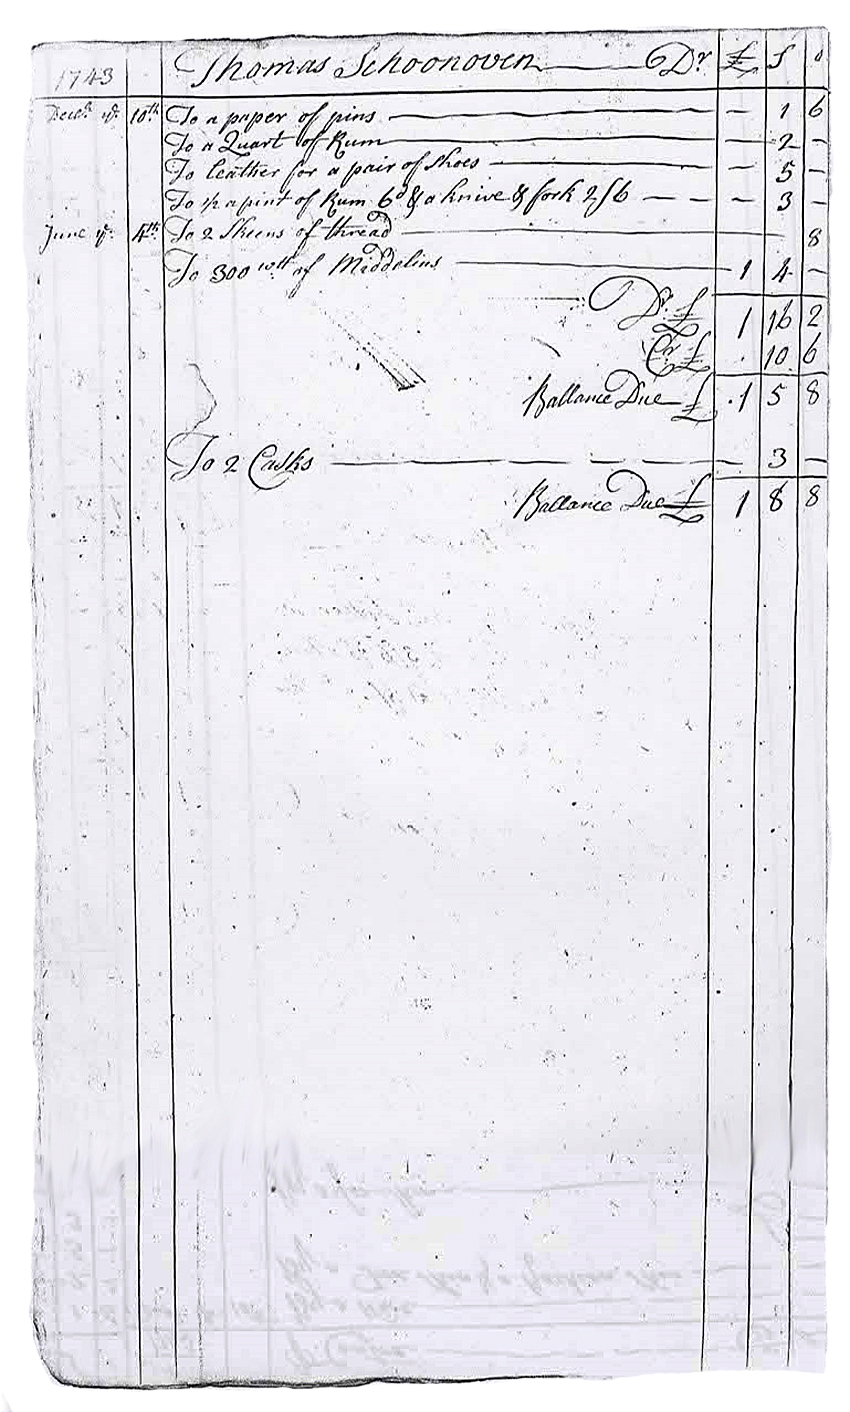 1743 Thomas Schoonoven Dr £ s d
Decr ye 10th To a paper of pins — 1 6
To a Quart of Rum — 2 —
To leather for a pair of Shoes — 5 —
To ½ a pint of Rum 6d & a knive & fork 2/6 — 3 —
June ye 4th To 2 Skeens of thread 8
To 300 wtt of Middelins 1 4 —
Dr £ 1 16 2
Cr £ . 10 6
Ballance Due £ .1 5 8
To 2 Casks — 3 —
Ballance Due £ 1 8 8